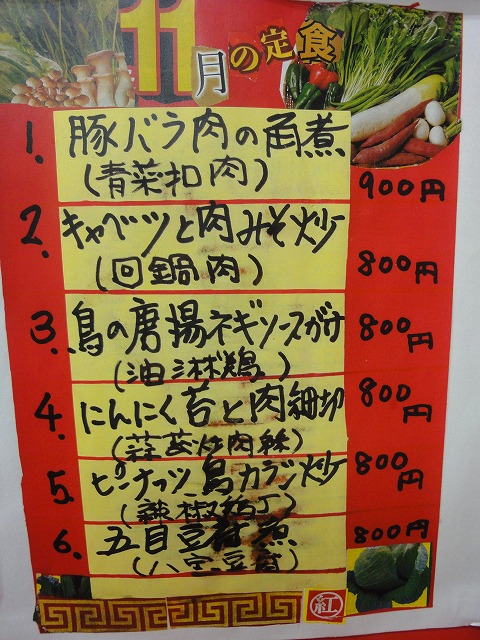 11月の定食
1. 豚バラ肉の角煮
(青菜扣肉)
900円
2. キャベツと肉みそ炒
(回鍋肉)
800円
3. 鳥の唐揚ネギソースがけ
(油淋鶏)
800円
4. にんにく苔と肉細切
(蒜苔炒肉絲)
800円
5. ピーナッツ、鳥カラシ炒
(辣椒鶏丁)
800円
6. 五目豆腐煮
(八宝豆腐)
800円
紅